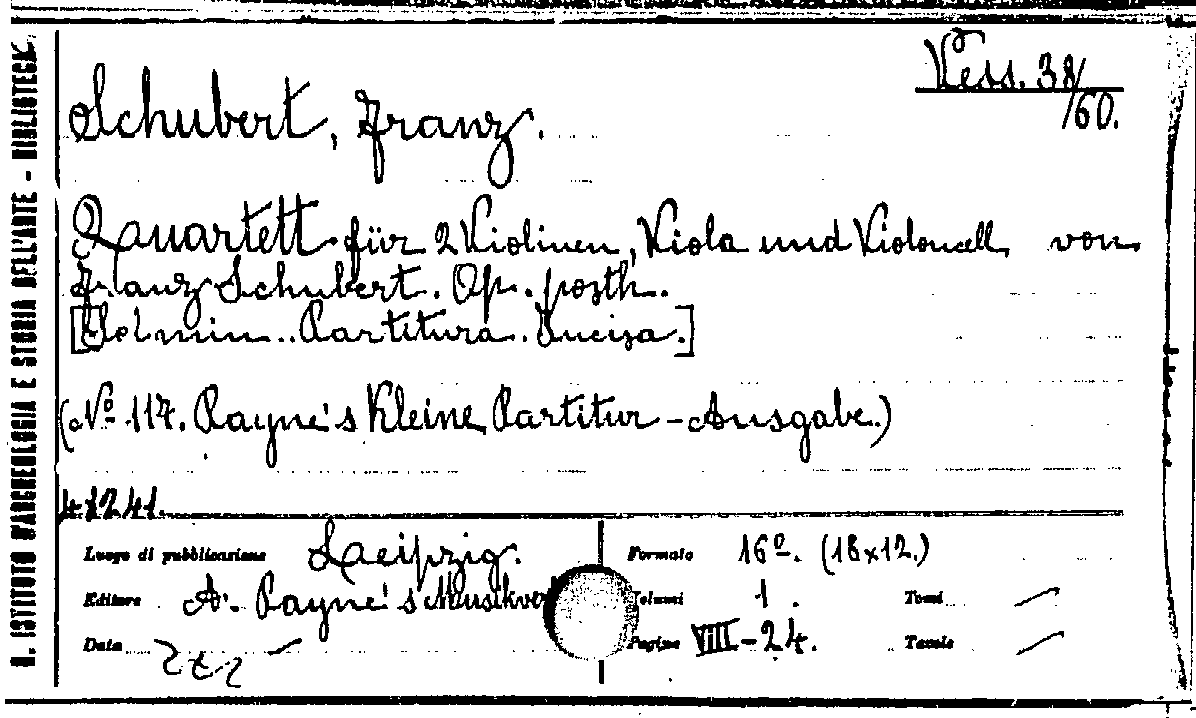 R. ISTITUTO D'ARCHEOLOGIA E STORIA DELL'ARTE - BIBLIOTECA
Vess. 38/60.
Schubert, Franz.
Quartett für 2 Violinen, Viola und Violoncell von
Franz Schubert. Op. posth.
[Sol min.. Partitura. Incisa.]
(Nº 117. Payne's Kleine Partitur-Ausgabe.)
41241.
Luogo di pubblicazione Leipzig.
Editore A. Payne's Musikver
Data
Formato 16º. (18x12.)
Volumi 1. Tomi
Pagine VIII-24. Tavole